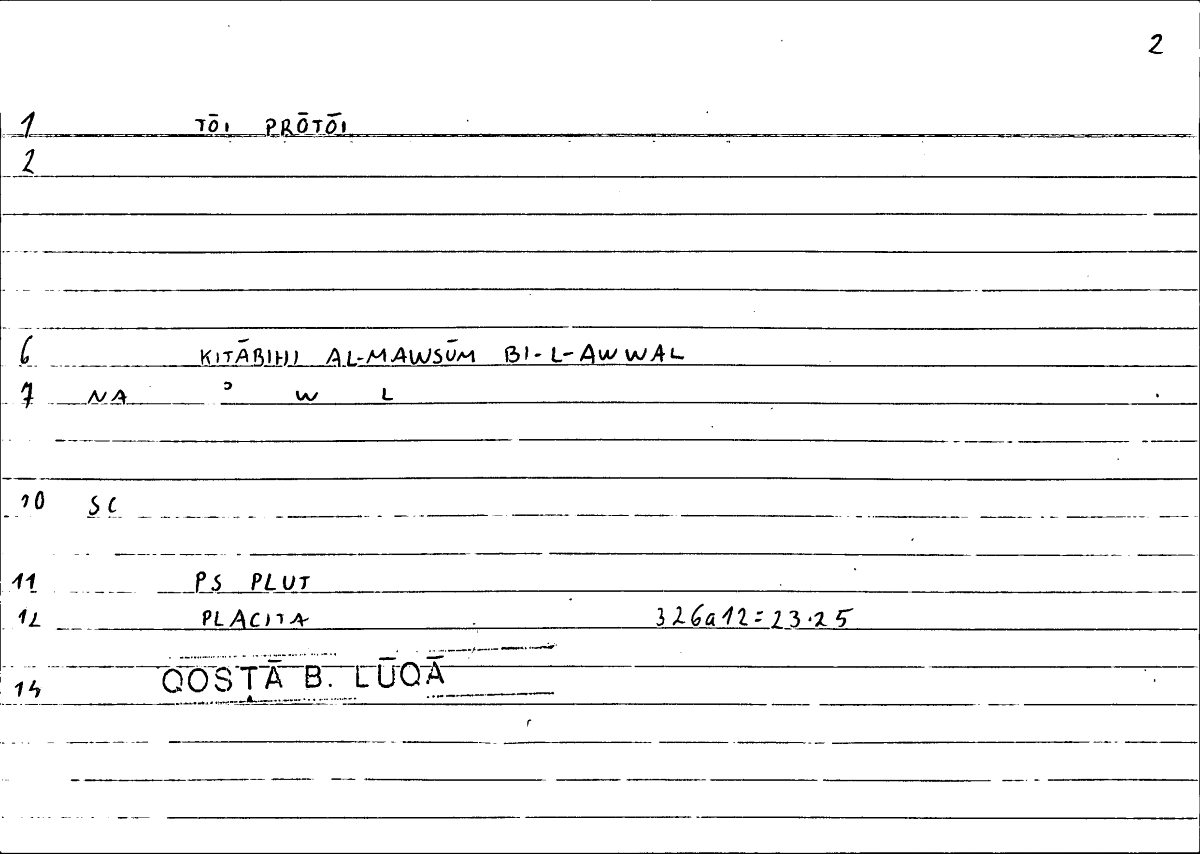 2
1 TŌI PRŌTŌI
2
6 KITĀBIHI AL-MAWSŪM BI-L-AWWAL
7 NA ʾ W L
10 SC
11 PS PLUT
12 PLACITA 326a12=23.25
14 QOSṬĀ B. LŪQĀ